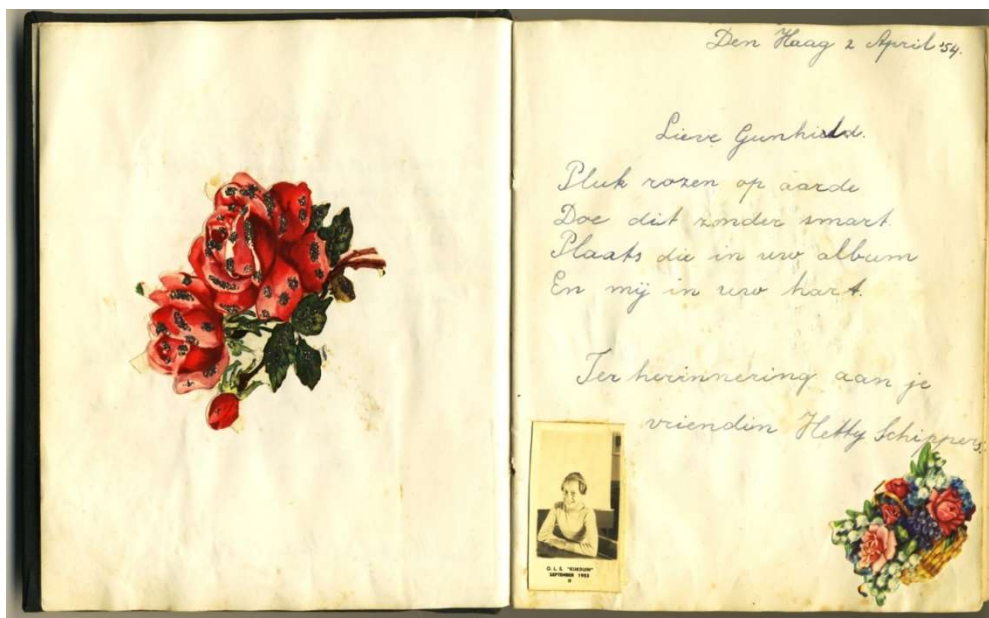 Den Haag 2 April '54.
Lieve Gunhild.
Pluk rozen op aarde
Doe dit zonder smart.
Plaats die in uw album
En mij in uw hart.
Ter herinnering aan je
vriendin Hetty Schippers.
O. L. S. "KIJKDUIN"
SEPTEMBER 1953